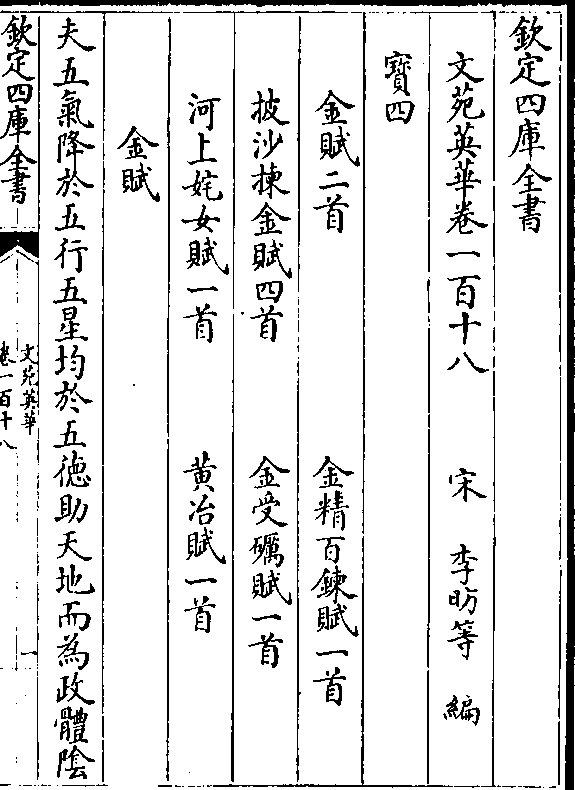 欽定四庫全書
文苑英華卷一百十八 宋 李昉等 編
寶四
金賦二首 金精百鍊賦一首
披沙揀金賦四首 金受礪賦一首
河上姹女賦一首 黄冶賦一首
金賦
夫五氣降於五行五星均於五德助天地而為政體陰
欽定四庫全書
文苑英華
卷一百十八
一